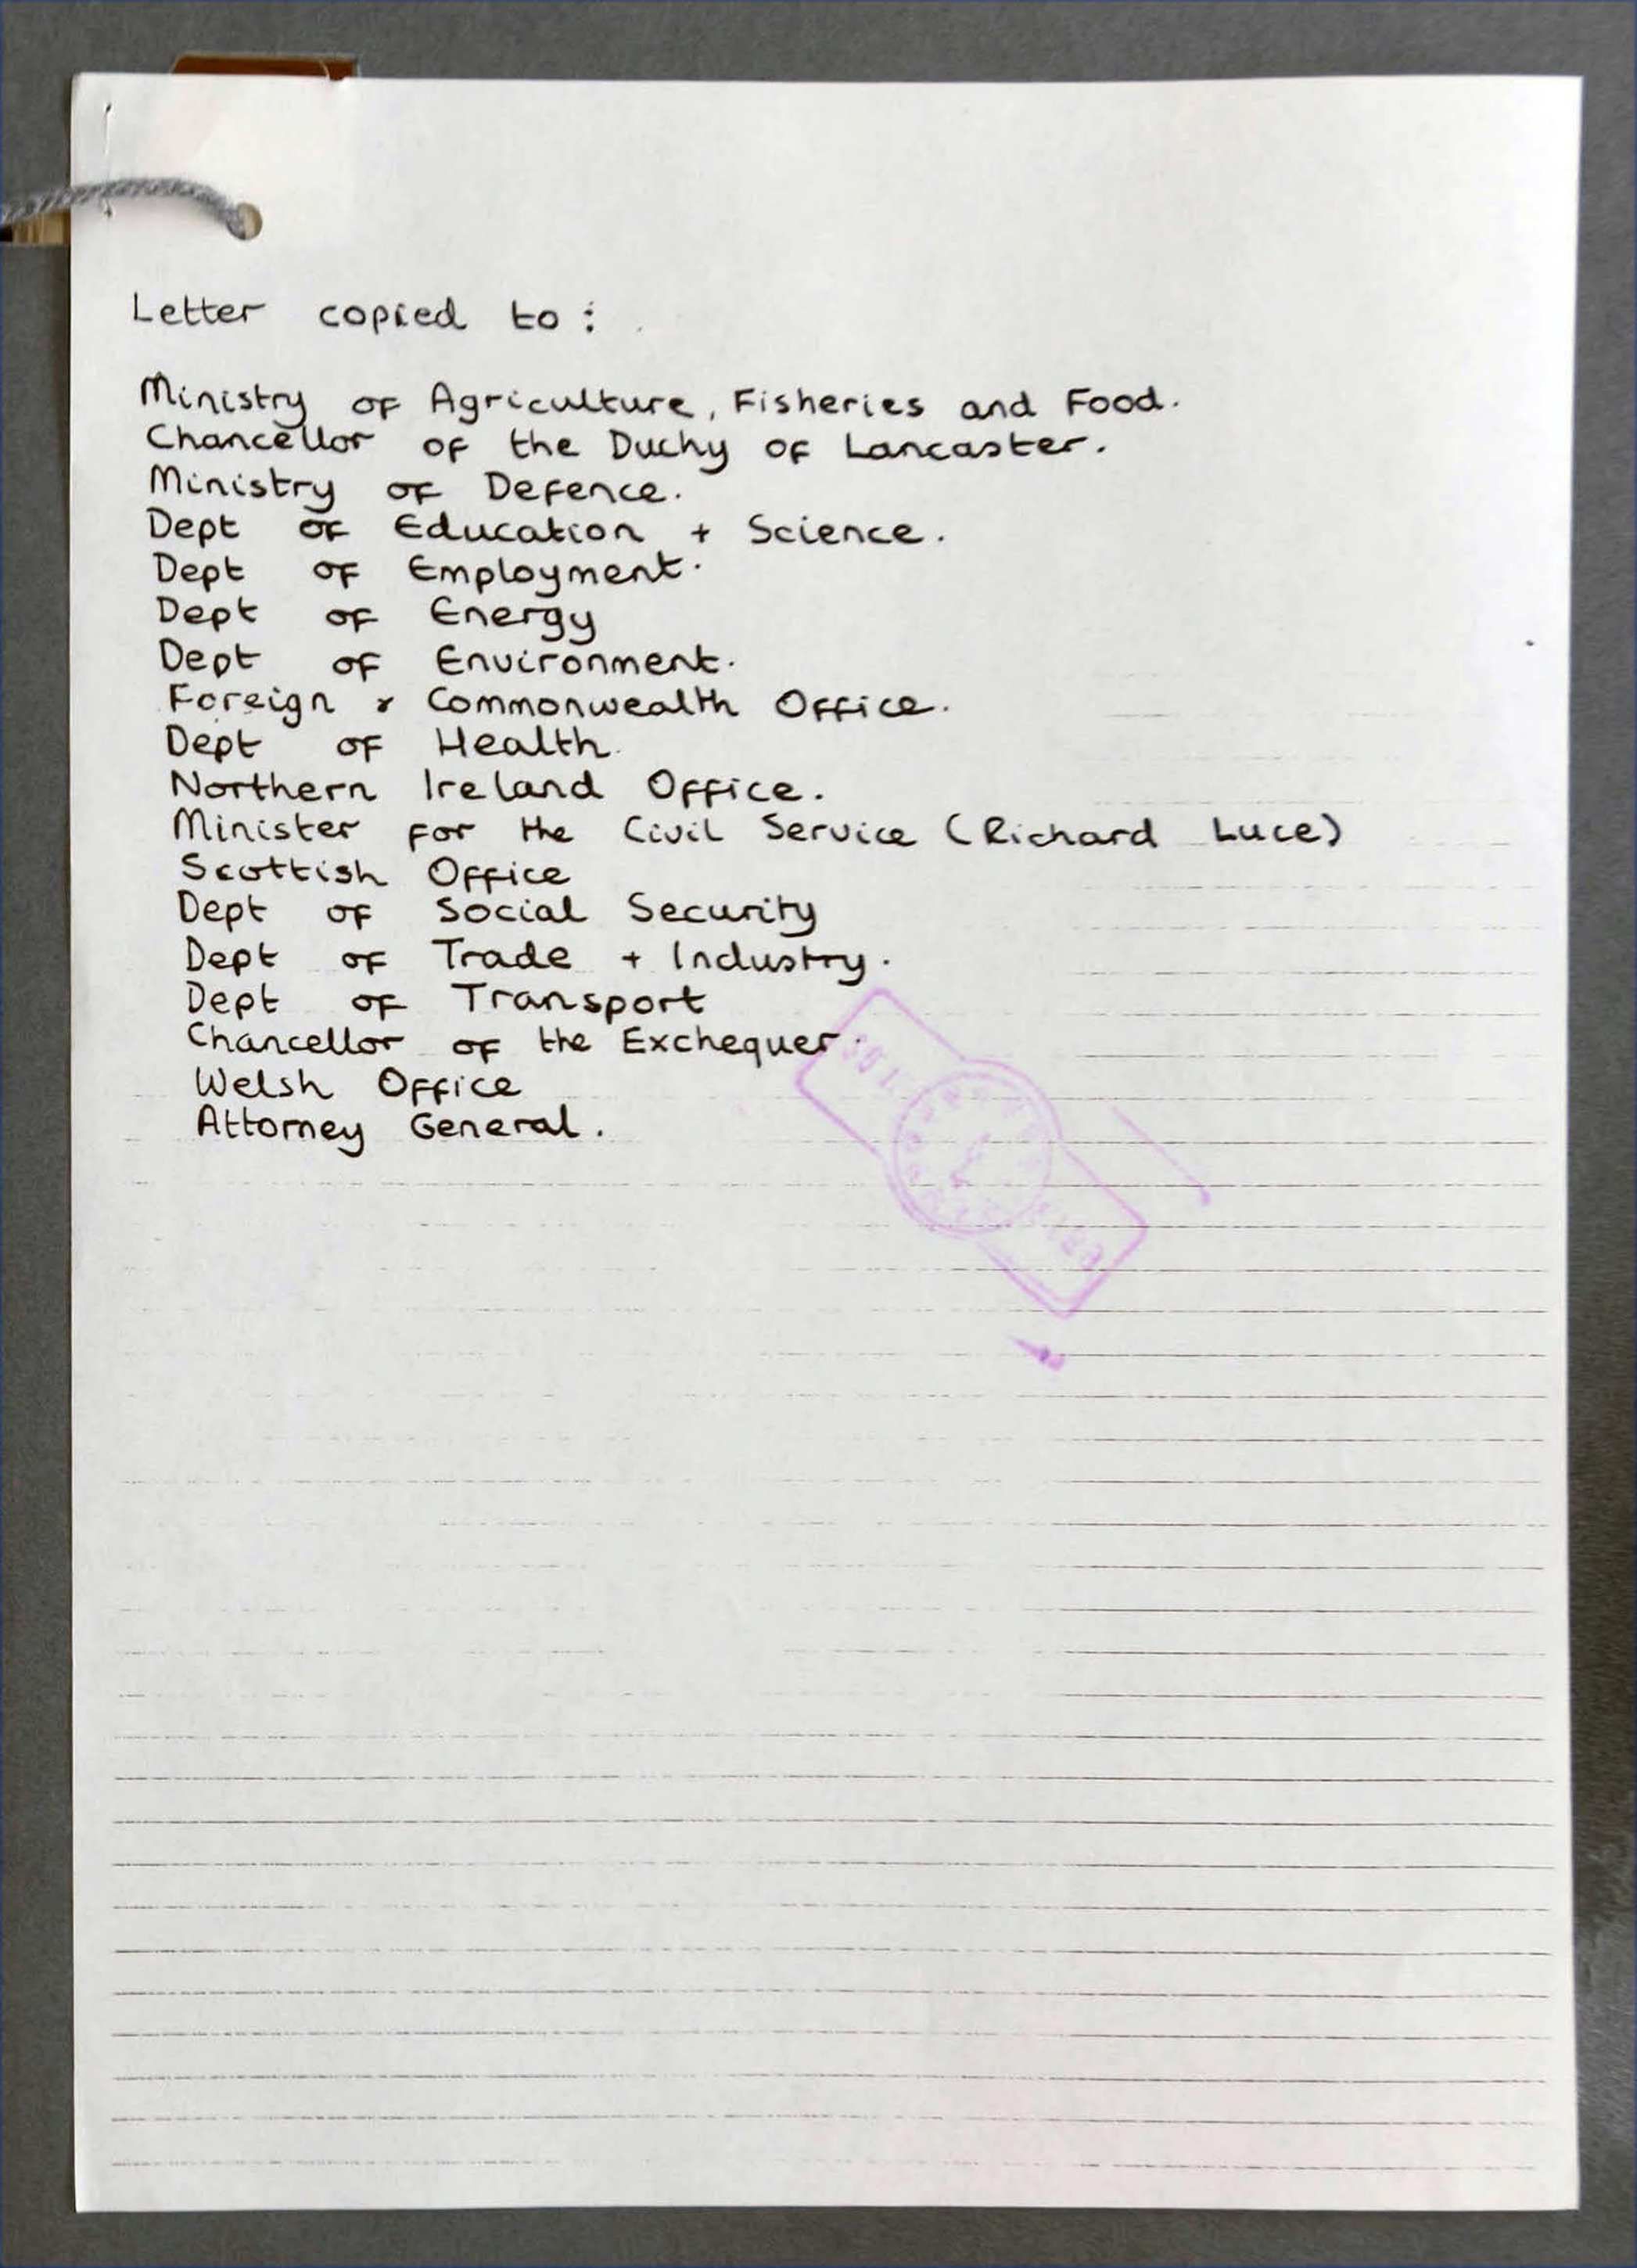 Letter copied to :
Ministry of Agriculture, Fisheries and Food.
Chancellor of the Duchy of Lancaster.
Ministry of Defence.
Dept of Education + Science.
Dept of Employment.
Dept of Energy
Dept of Environment.
Foreign & Commonwealth Office.
Dept of Health.
Northern Ireland Office.
Minister for the Civil Service (Richard Luce)
Scottish Office
Dept of Social Security
Dept of Trade + Industry.
Dept of Transport
Chancellor of the Exchequer.
Welsh Office
Attorney General.